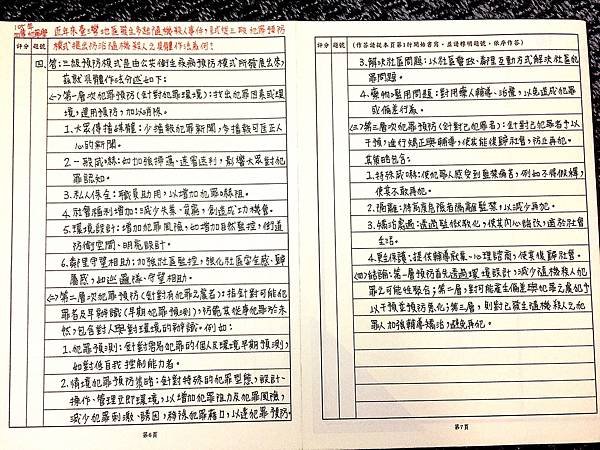 近年來臺灣地區發生多起隨機殺人事件,試從三級犯罪預防
評分 題號 模式提出防治隨機殺人之具體作法為何?
四、答:三級預防模式是由公共衛生疾病預防模式所發展出來,
茲就具體作法分述如下:
(一)第一層次犯罪預防(針對犯罪環境):找出犯罪因素或環
境,運用預防,加以消除。
1.大眾傳播媒體:少播報犯罪新聞,多播報可匡正人
心的新聞。
2.一般威嚇:如加強掃蕩、速審速判,影響大眾對犯
罪認知。
3.私人保全:職員助用,以增加犯罪嚇阻。
4.社會福利增加:減少失業、貧窮,創造成功機會。
5.環境設計:增加犯罪風險,如增加自然監控,街道
防衛空間、明亮設計。
6.鄰里守望相助:加強社區監控,強化社區安全感、歸
屬感,如巡邏隊、守望相助。
(二)第二層次犯罪預防(針對有犯罪之虞者):指針對可能犯
罪者及早辨識(早期犯罪預測),防範其從事犯罪於未
然,包含對人與對環境的辨識,例如:
1.犯罪預測:針對潛局犯罪的個人及環境早期預測,
如對低自我控制能力者。
2.情境犯罪預防策略:針對特殊的犯罪型態,設計、
操作、管理立即環境,以增加犯罪阻力及犯罪風險,
減少犯罪刺激、誘因,移除犯罪藉口,以達犯罪預防。
第6頁
評分 題號 (作答請從本頁第1行開始書寫,並請標明題號,依序作答)
3.解決社區問題:以社區警政、鄰里互動方式解決社區犯
罪問題。
4.藥物濫用問題:對用藥人輔導、治療,以免造成犯罪
或偏差行為。
(三)第三層次犯罪預防(針對已犯罪者):針對已犯罪者予以
干預,進行矯正與輔導,使其能復歸社會,防止再犯。
其策略包含:
1.特殊威嚇:使犯罪人感受到監禁痛苦,例如不得假釋,
使其不敢再犯。
2.隔離:將高度危險者隔離監禁,以減少再犯。
3.矯治處遇:透過監獄教化,使其內心悔改,適於社會
生活。
4.更生保護:提供輔導就業、心理諮商,使其復歸社會。
(四)結論:第一層預防首先透過環境設計,減少隨機殺人犯
罪之可能性聚合;第二層,對可能產生偏差與犯罪之虞犯予
以干預並預防惡化;第三層,則對已發生隨機殺人之犯
罪人加強輔導矯治,避免再犯。
第7頁